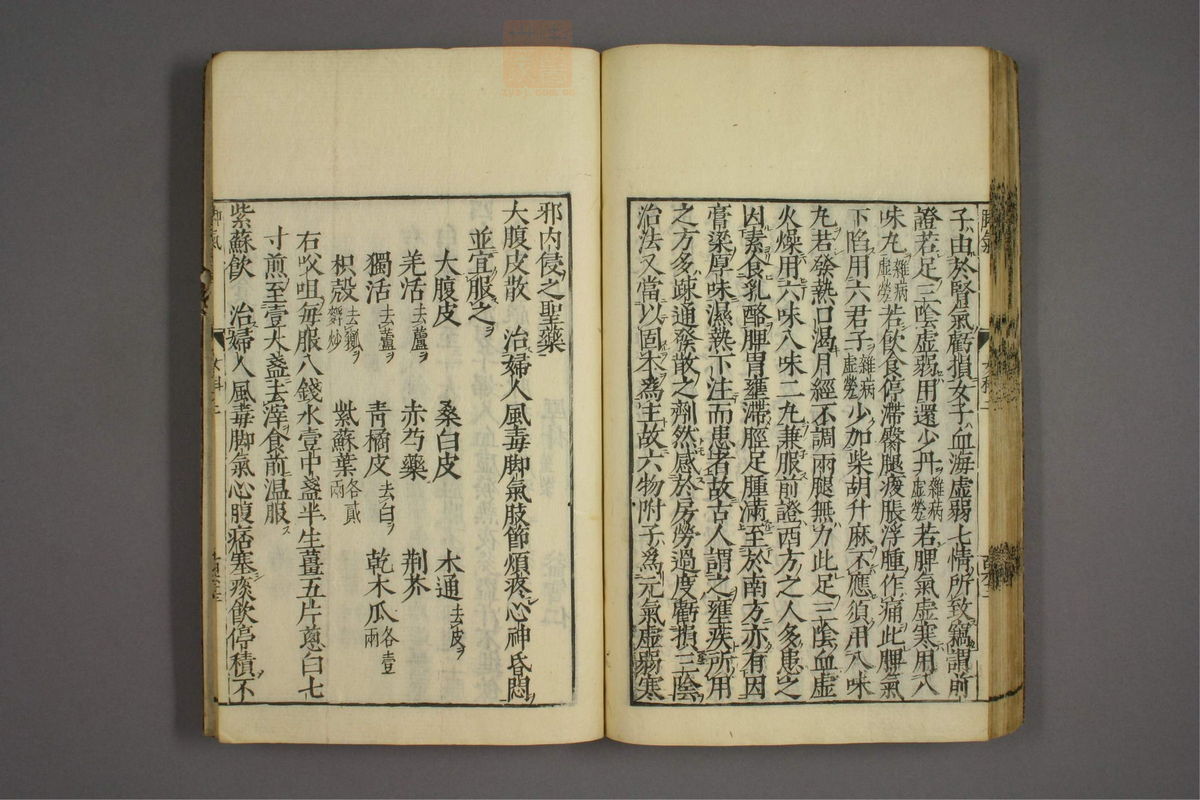 子由於腎氣虧損女子血海虛弱七情所致竊謂前
證若足三陰虛弱用還少丹雜病虛勞若脾氣虛寒用八
味丸雜病虛勞若飲食停滯臂腿痠脹浮腫作痛此脾氣
下陷用六君子雜病虛勞少加柴胡升麻不應須用八味
丸若發熱口渴月經不調兩腿無力此足三陰血虛
火燥用六味八味二丸兼服前證西方之人多患之
因素食乳酪脾胃壅滯脛足腫滿至於南方亦有因
膏粱厚味濕熱下注而患者故古人謂之壅疾所用
之方多疎通發散之劑然感於房勞過度虧損三陰
治法又當以固本為主故六物附子為元氣虛弱寒
邪内侵之聖藥
大腹皮散 治婦人風毒脚氣肢節煩疼心神昏悶
並宜服之
大腹皮 桑白皮 木通去皮
羌活去蘆 赤芍藥 荆芥
獨活去蘆 青橘皮去白 乾木瓜各壹兩
枳殼去穰麩炒 紫蘇葉各貳兩
右㕮咀每服八錢水壹中盞半生薑五片蔥白七
寸煎至壹大盞去滓食前温服
紫蘇飲 治婦人風毒脚氣心腹痞塞痰飲停積不